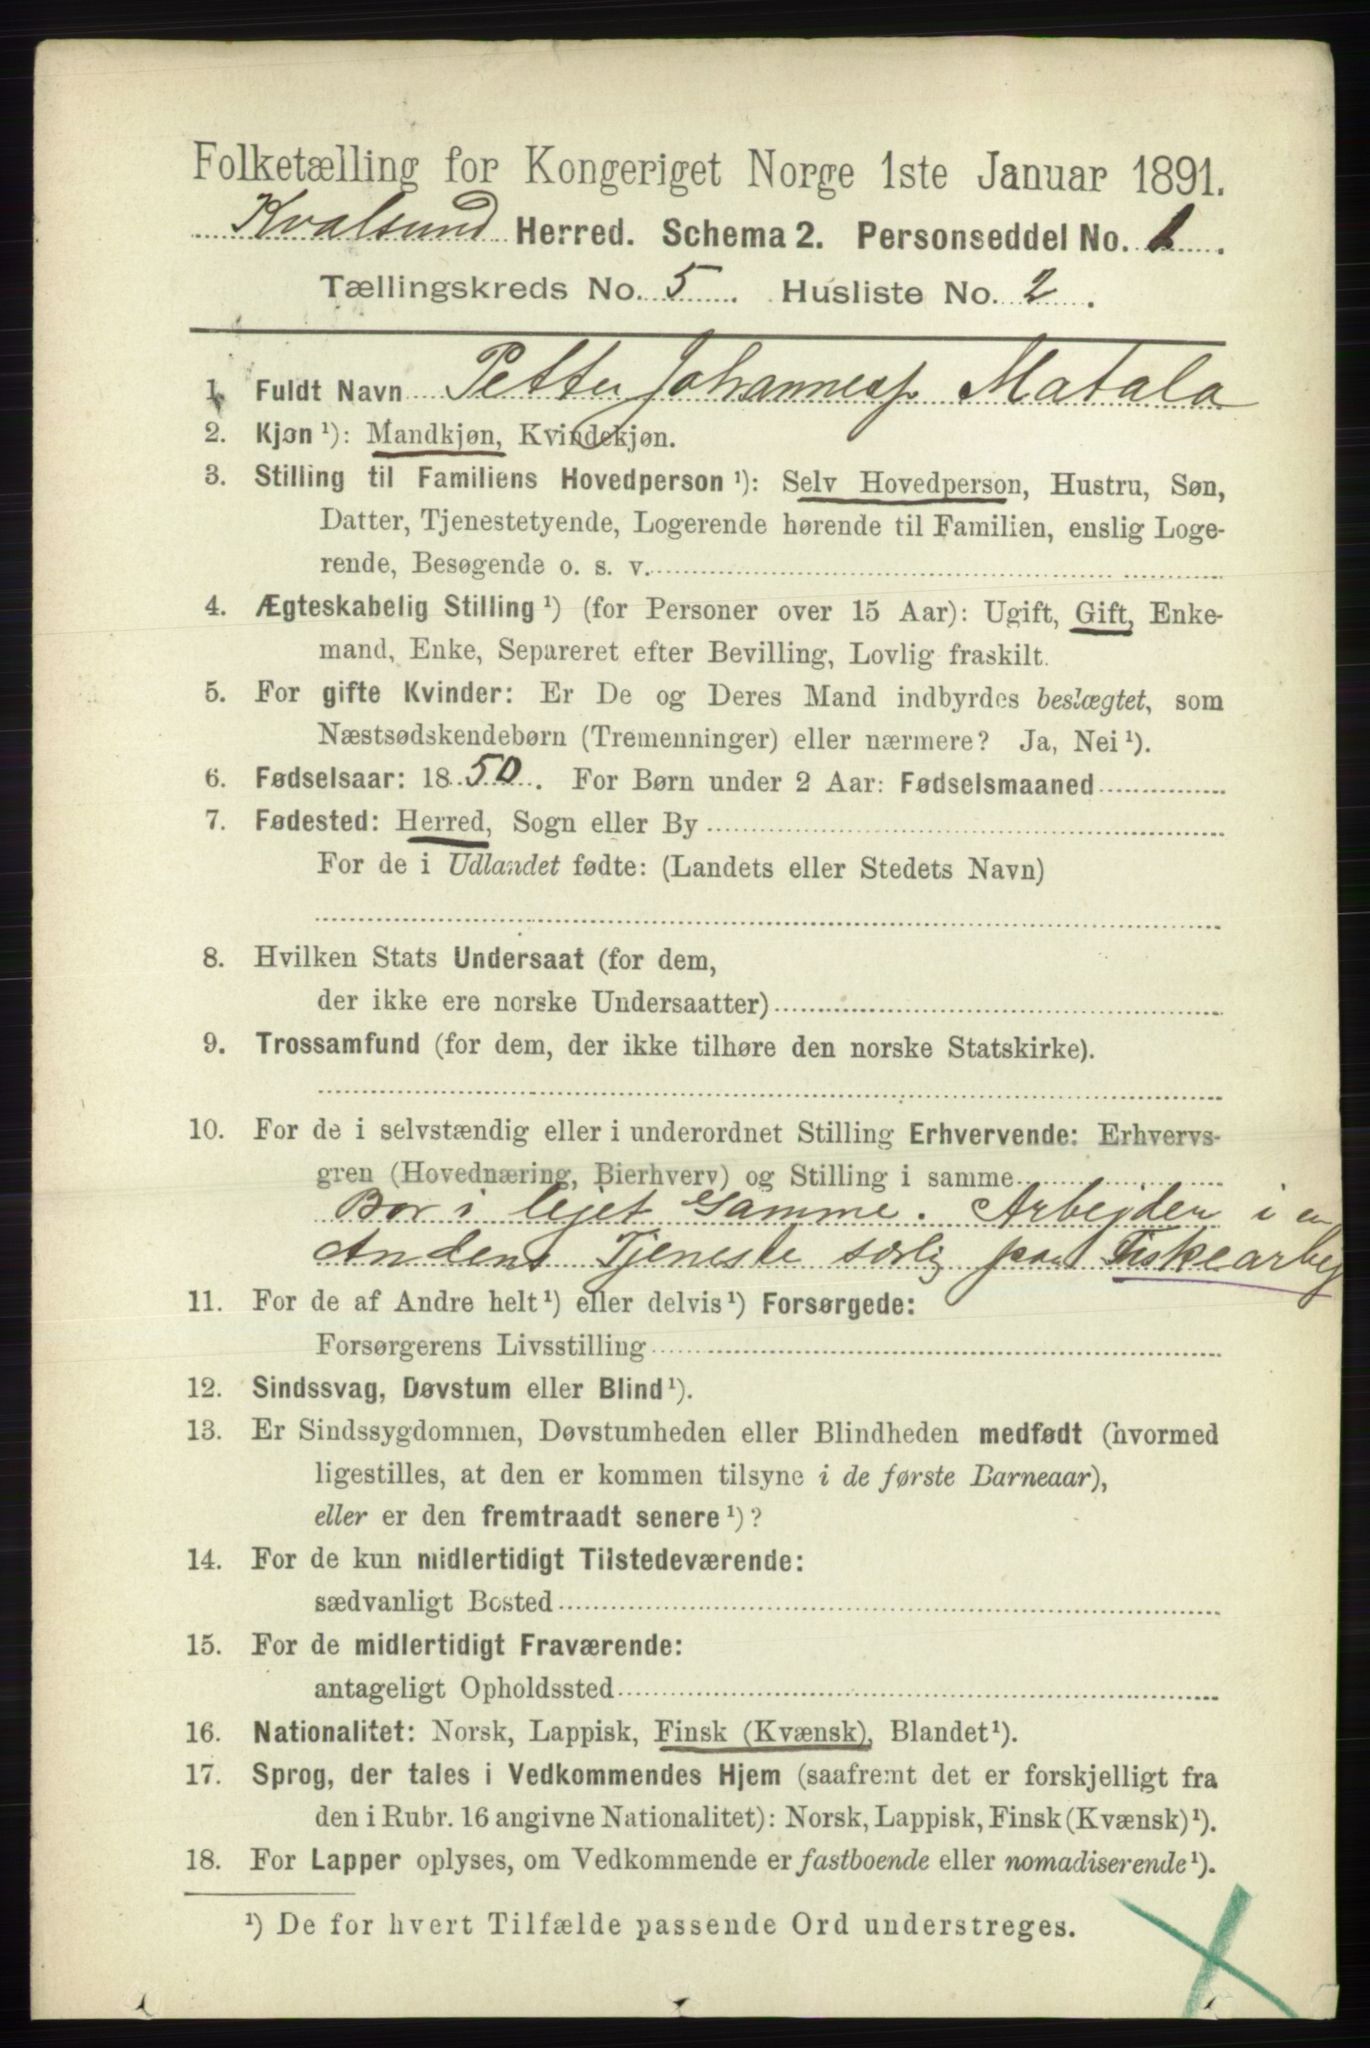 Folketælling for Kongeriget Norge 1ste Januar 1891.
Kvalsund Herred. Schema 2. Personseddel No. 1.
Tællingskreds No. 5. Husliste No. 2.
1. Fuldt Navn Petter Johanness. Matala
2. Kjøn ¹): Mandkjøn, Kvindekjøn.
3. Stilling til Familiens Hovedperson ¹): Selv Hovedperson, Hustru, Søn,
Datter, Tjenestetyende, Logerende hørende til Familien, enslig Loge-
rende, Besøgende o. s. v.
4. Ægteskabelig Stilling ¹) (for Personer over 15 Aar): Ugift, Gift, Enke-
mand, Enke, Separeret efter Bevilling, Lovlig fraskilt.
5. For gifte Kvinder: Er De og Deres Mand indbyrdes beslægtet, som
Næstsødskendebørn (Tremenninger) eller nærmere? Ja, Nei ¹).
6. Fødselsaar: 1850. For Børn under 2 Aar: Fødselsmaaned
7. Fødested: Herred, Sogn eller By
For de i Udlandet fødte: (Landets eller Stedets Navn)
8. Hvilken Stats Undersaat (for dem,
der ikke ere norske Undersaatter)
9. Trossamfund (for dem, der ikke tilhøre den norske Statskirke).
10. For de i selvstændig eller i underordnet Stilling Erhvervende: Erhvervs-
gren (Hovednæring, Bierhverv) og Stilling i samme
Bor i lejet Gamme. Arbejder i en
Andens Tjeneste særlig paa Fiskearbej
11. For de af Andre helt ¹) eller delvis ¹) Forsørgede:
Forsørgerens Livsstilling
12. Sindssvag, Døvstum eller Blind ¹).
13. Er Sindssygdommen, Døvstumheden eller Blindheden medfødt (hvormed
ligestilles, at den er kommen tilsyne i de første Barneaar),
eller er den fremtraadt senere ¹)?
14. For de kun midlertidigt Tilstedeværende:
sædvanligt Bosted
15. For de midlertidigt Fraværende:
antageligt Opholdssted
16. Nationalitet: Norsk, Lappisk, Finsk (Kvænsk), Blandet ¹).
17. Sprog, der tales i Vedkommendes Hjem (saafremt det er forskjelligt fra
den i Rubr. 16 angivne Nationalitet): Norsk, Lappisk, Finsk (Kvænsk) ¹).
18. For Lapper oplyses, om Vedkommende er fastboende eller nomadiserende ¹).
¹) De for hvert Tilfælde passende Ord understreges.